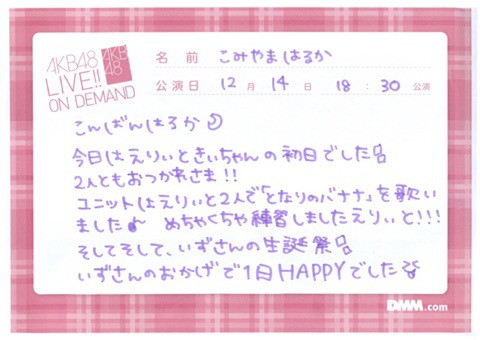 AKB48
LIVE!!
ON DEMAND
AKB
48
名前 こみやまはるか
公演日 12月14日 18:30公演
こんばんはるか
今日はえりぃときぃちゃんの初日でした
2人ともおつかれさま!!
ユニットはえりぃと2人で「となりのバナナ」を歌い
ました めちゃくちゃ練習しましたえりぃと!!!
そしてそして、いずさんの生誕祭
いずさんのおかげで1日HAPPYでした
DMM.com